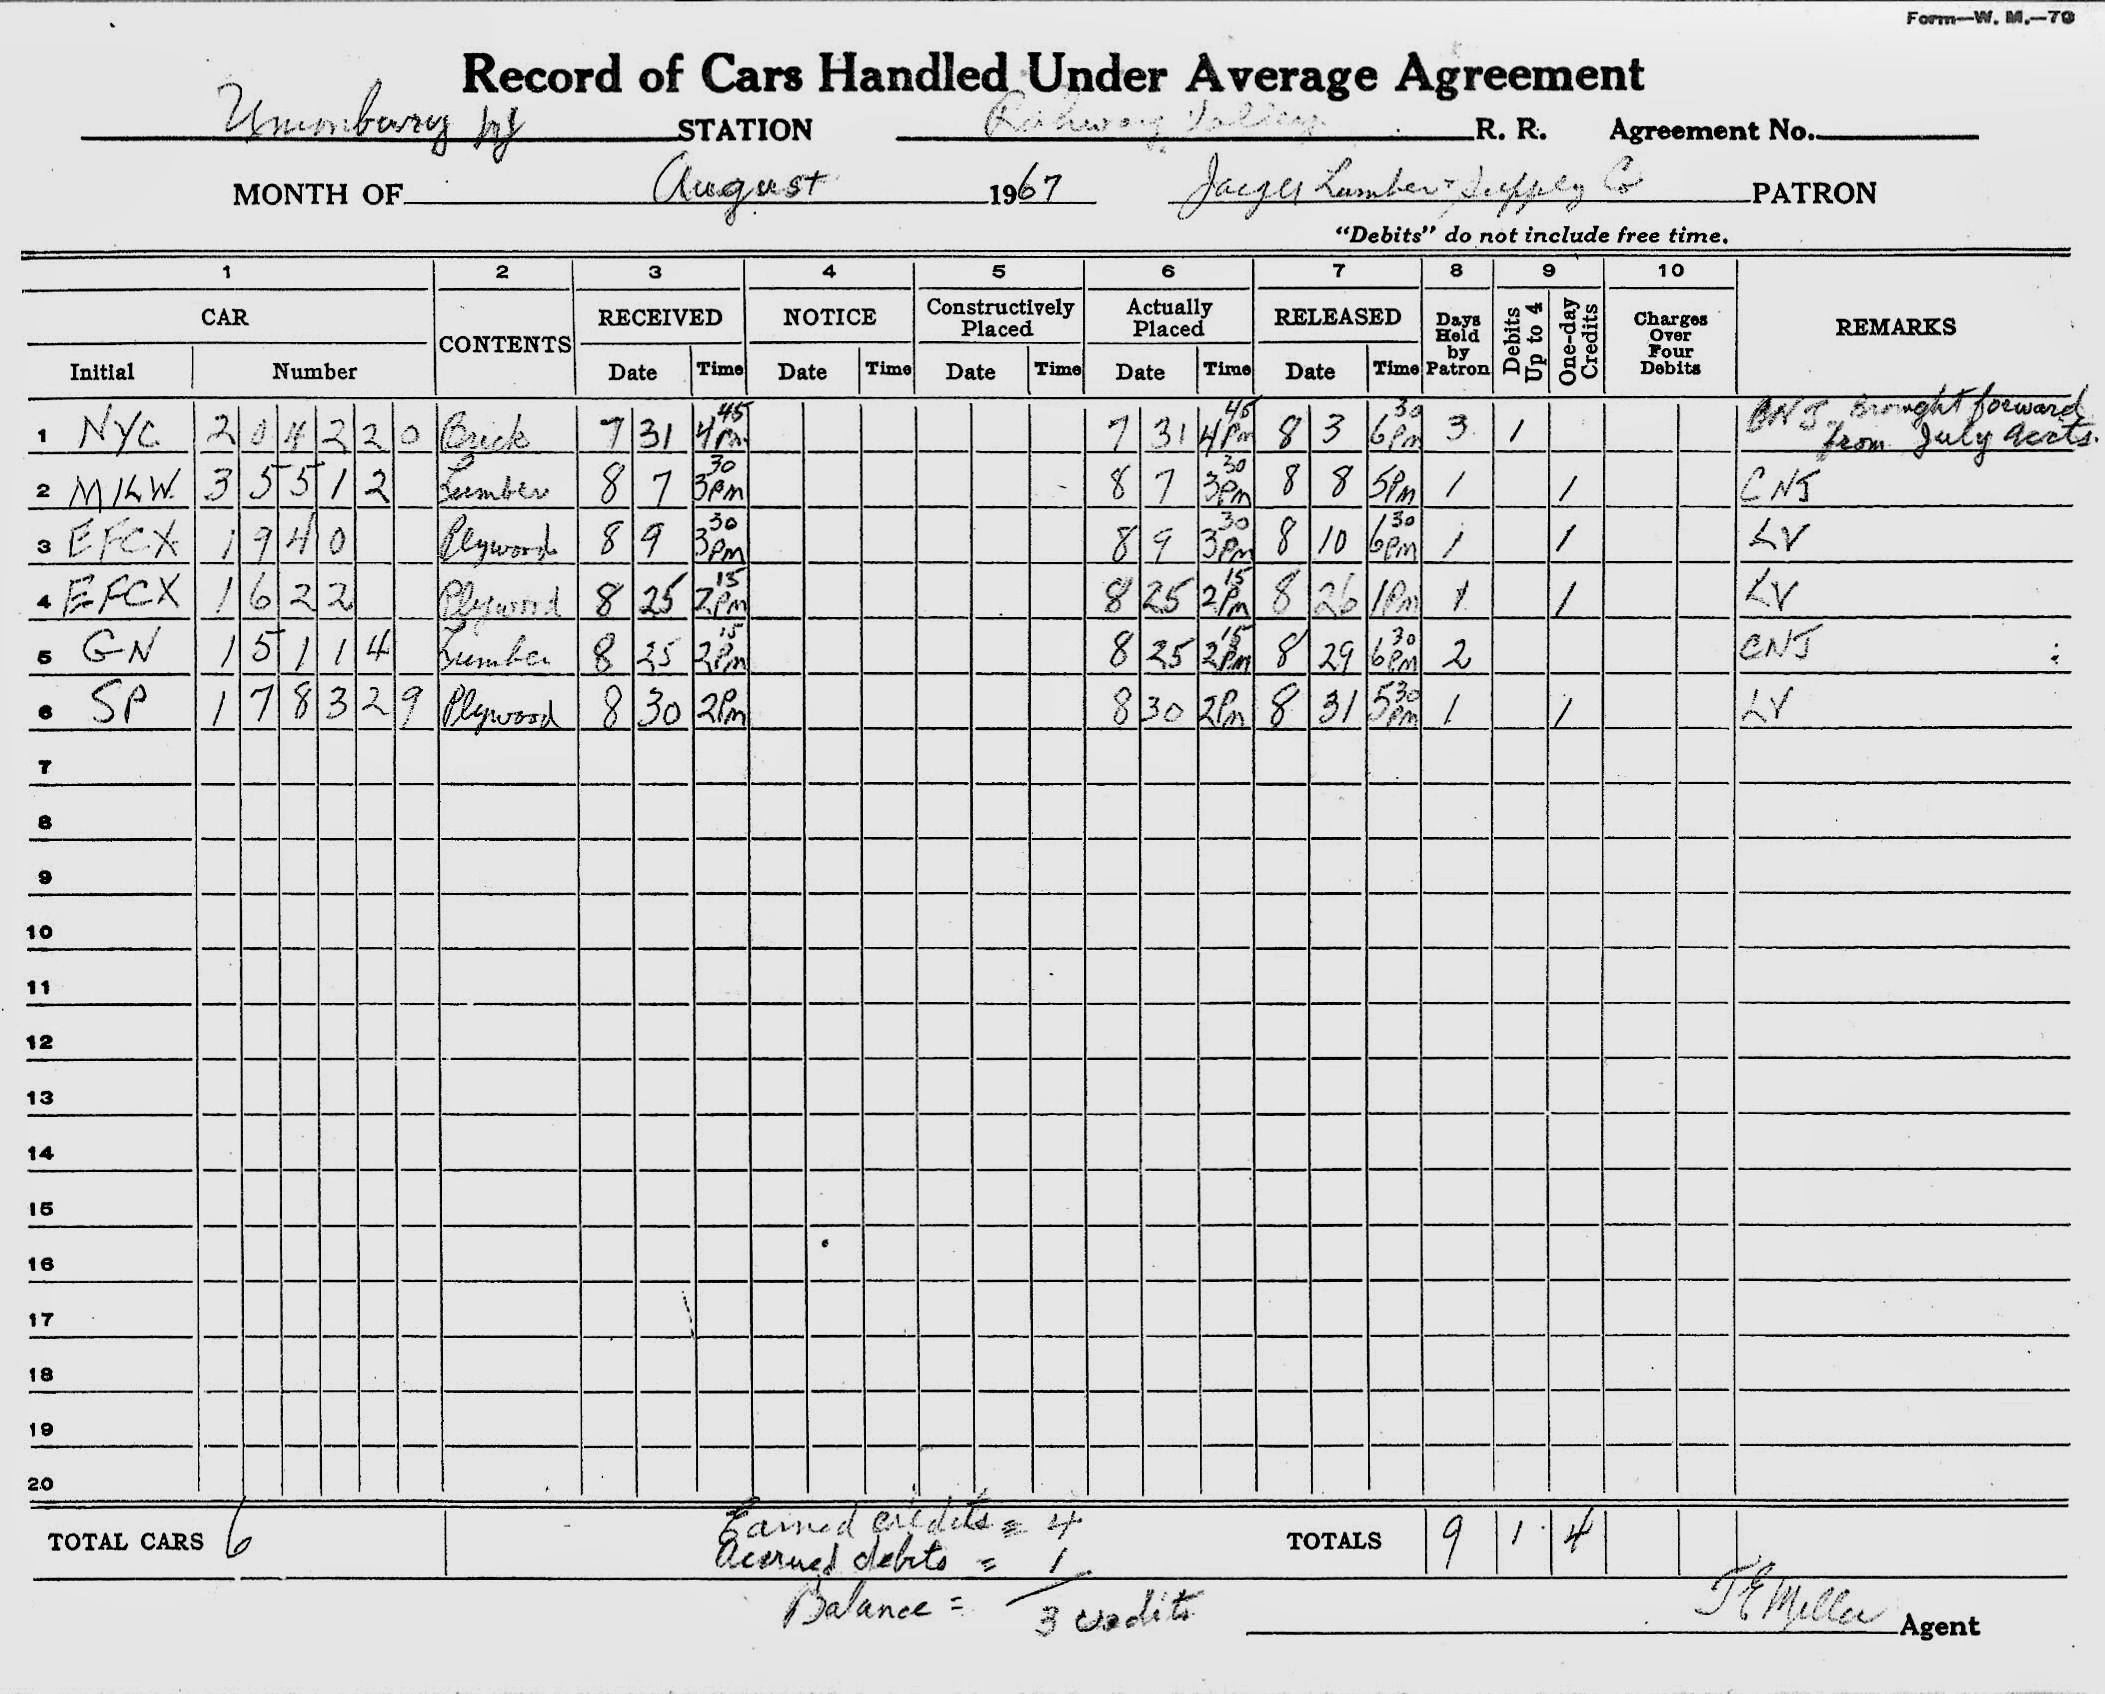 Form—W. M.—70
Record of Cars Handled Under Average Agreement
Unionbury NJ STATION Rahway Valley R. R. Agreement No.
MONTH OF August 1967 Jaeger Lumber & Supply Co PATRON
"Debits" do not include free time.
1 2 3 4 5 6 7 8 9 10
CAR CONTENTS RECEIVED NOTICE Constructively Placed Actually Placed RELEASED Days Held by Patron Debits Up to 4 One-day Credits Charges Over Four Debits REMARKS
Initial Number Date Time Date Time Date Time Date Time Date Time
1 NYC 204220 Brick 7 31 4 45 PM 7 31 4 45 PM 8 3 6 30 PM 3 1 CNJ Brought forward from July accts.
2 MILW. 35512 Lumber 8 7 3 30 PM 8 7 3 30 PM 8 8 5PM 1 1 CNJ
3 EFCX 1940 Plywood 8 9 3 30 PM 8 9 3 30 PM 8 10 6 30 PM 1 1 LV
4 EFCX 1622 Plywood 8 25 2 15 PM 8 25 2 15 PM 8 26 1PM 1 1 LV
5 GN 15114 Lumber 8 25 2 15 PM 8 25 2 15 PM 8 29 6 30 PM 2 CNJ
6 SP 178329 Plywood 8 30 2PM 8 30 2PM 8 31 5 30 PM 1 1 LV
7
8
9
10
11
12
13
14
15
16
17
18
19
20
TOTAL CARS 6 Earned credits = 4 TOTALS 9 1 4
Accrued debits = 1
Balance = 3 credits
J E Miller Agent